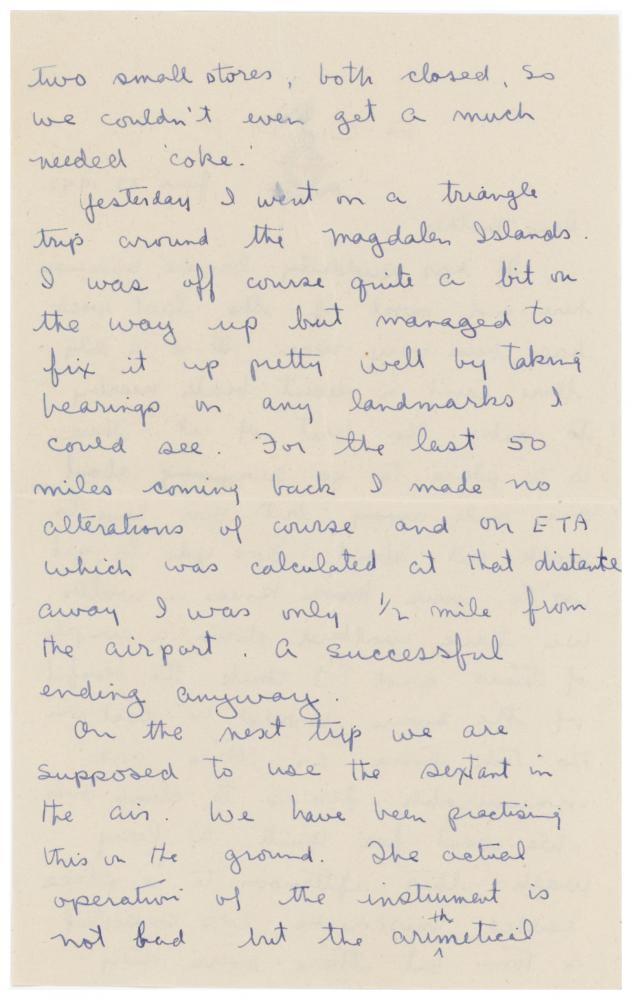 two small stores, both closed, so
we couldn't even get a much
needed 'coke.'
Yesterday I went on a triangle
trip around the Magdalen Islands.
I was off course quite a bit on
the way up but managed to
fix it up pretty well by taking
bearings on any landmarks I
could see. For the last 50
miles coming back I made no
alterations of course and on ETA
which was calculated at that distance
away I was only 1/2 mile from
the airport. A successful
ending anyway.
On the next trip we are
supposed to use the sextant in
the air. We have been practising
this on the ground. The actual
operation of the instrument is
not bad but the arithmetical